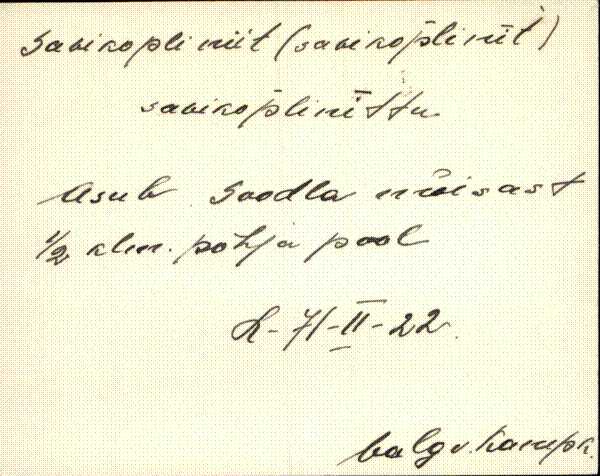 Savikopliniit (savikop̄linīit)
savikop̄linīttu
Asub Soodla mõisast
1/2 klm. põhja pool
K-71-II-22
v. Kampk.